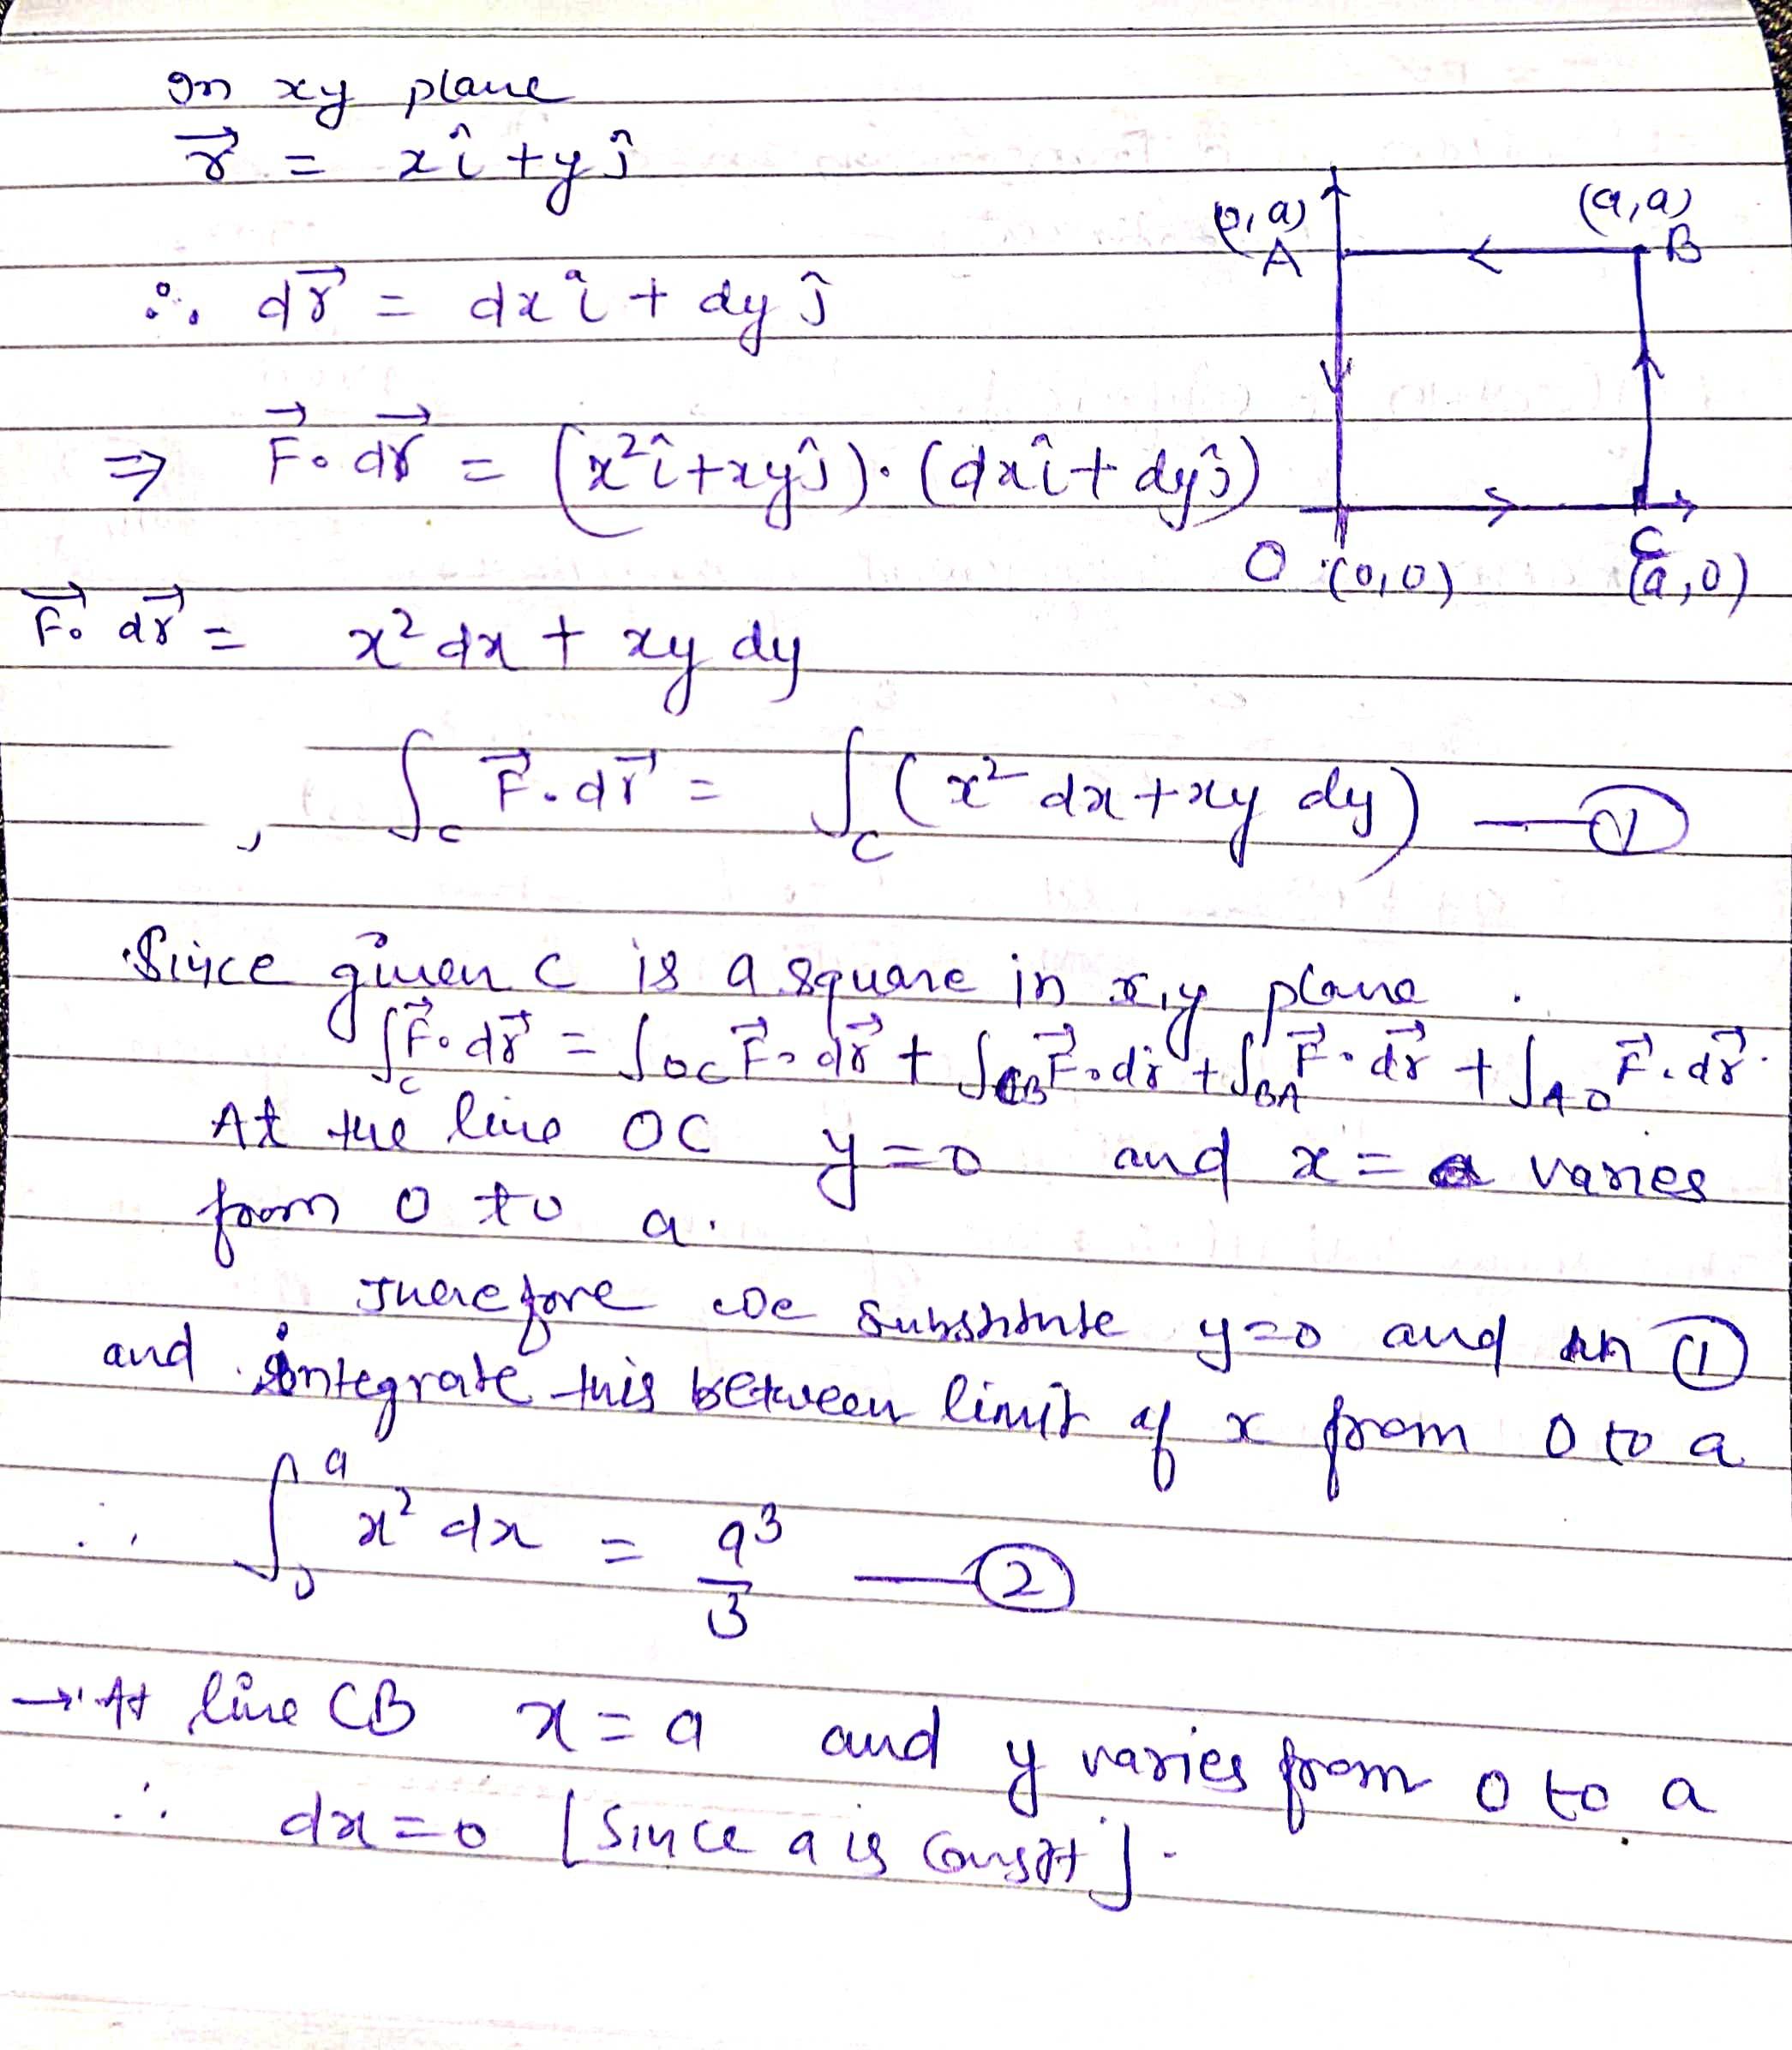 In xy plane
r⃗ = xî + yĵ
∴ dr⃗ = dx î + dy ĵ
(0,a) A
(a,a) B
⇒ F⃗ . dr⃗ = (x²î + xyĵ) . (dxî + dyĵ)
O (0,0)
C (a,0)
F⃗ . dr⃗ = x² dx + xy dy
, ∫_C F⃗ . dr⃗ = ∫_C (x² dx + xy dy) —①
Since given C is a square in x,y plane .
∫_C F⃗ . dr⃗ = ∫_OC F⃗ . dr⃗ + ∫_CB F⃗ . dr⃗ + ∫_BA F⃗ . dr⃗ + ∫_AO F⃗ . dr⃗
At the line OC y = 0 and x = varies
from 0 to a.
Therefore we substitute y=0 and in ①
and integrate this between limit of x from 0 to a
∴ ∫₀ᵃ x² dx = a³/3 —②
→ At line CB x = a and y varies from 0 to a
∴ dx = 0 [Since a is constt].